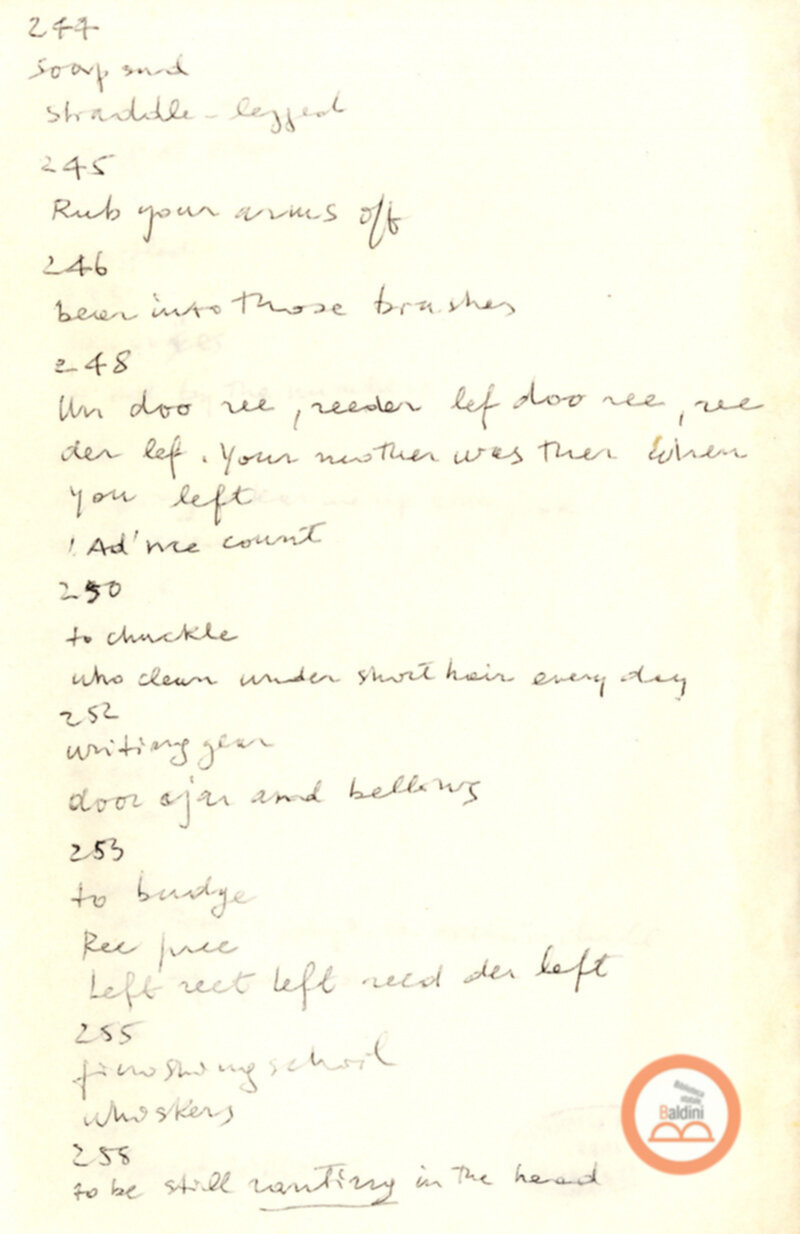 244
soap sud
straddle-legged
245
Rub your arms off
246
beer into those brushes
248
Un doo ree, reeder lef doo ree, ree
der lef. Your mother was ther when
you left
! Ad'me count
250
to chuckle
who clean under short hair every day
252
writing gear
door ajar and bellows
253
to budge
Ree pree
Left reet left reed der left
255
finishing school
whiskers
258
to be still ranting in the head
Biblioteca
statale
Baldini